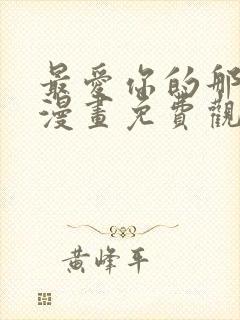 最愛你的那
漫畫免費觀
黃峰平